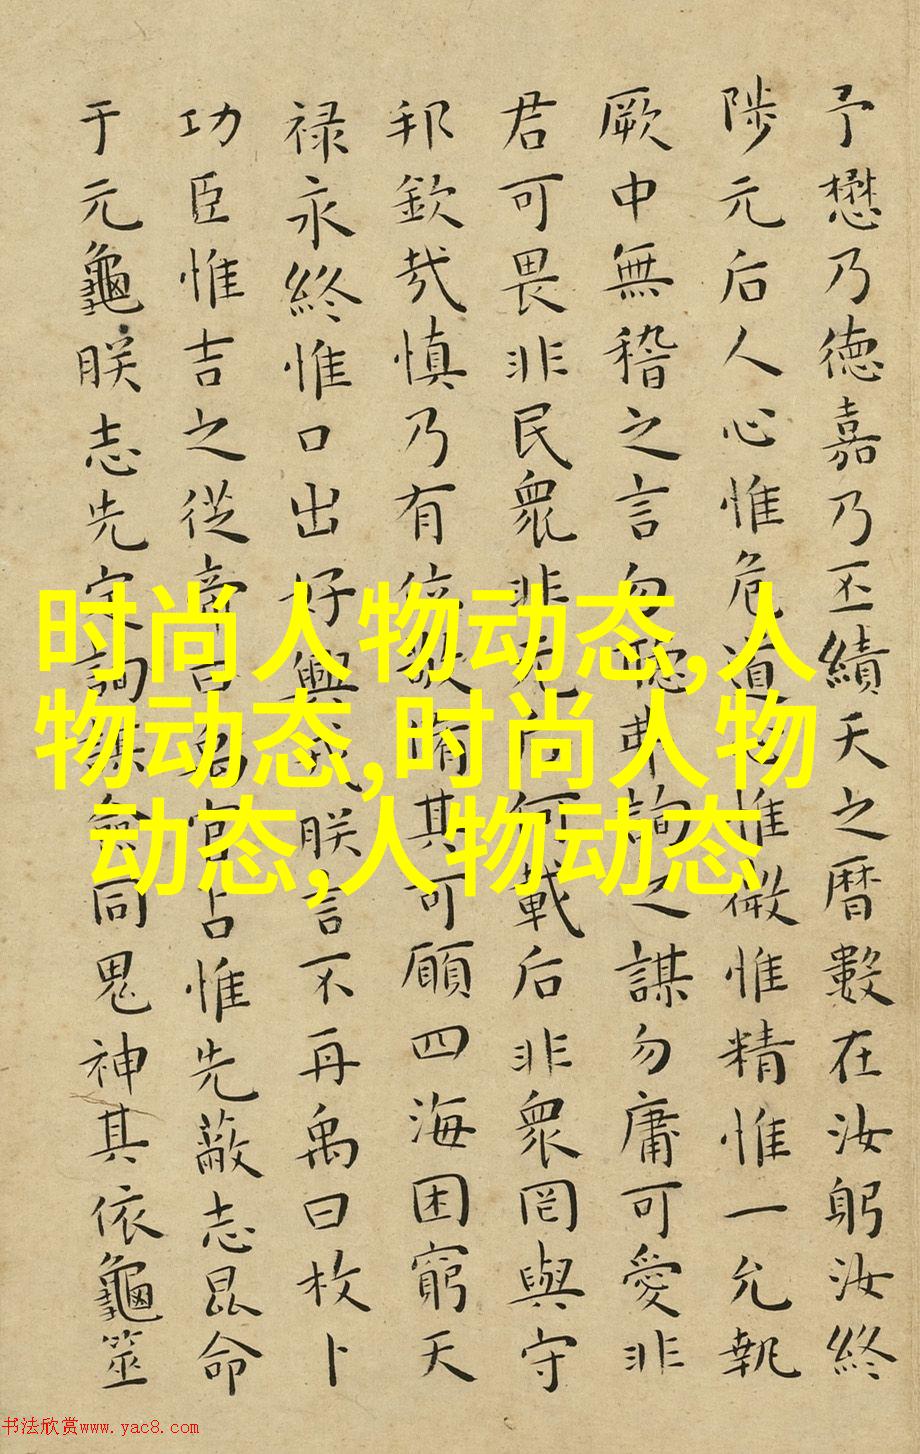 予懋乃德嘉乃丕績天之曆數在汝躬汝終
陟元后人心惟危道心惟微惟精惟一允執
厥中無稽之言勿聽弗詢之謀勿庸可愛非
君可畏非民衆非元后何載后非衆罔與守
邦欽哉慎乃有位敬脩其可願四海困窮天
禄永終惟口出好興戎朕言不再禹曰枚卜
功臣惟吉之從帝曰禹官占惟先蔽志昆命
于元龜朕志先定詢謀僉同鬼神其依龜筮
时尚人物动态,人
物动态,时尚人物
动态,人物动态
书法欣赏www.yac8.com